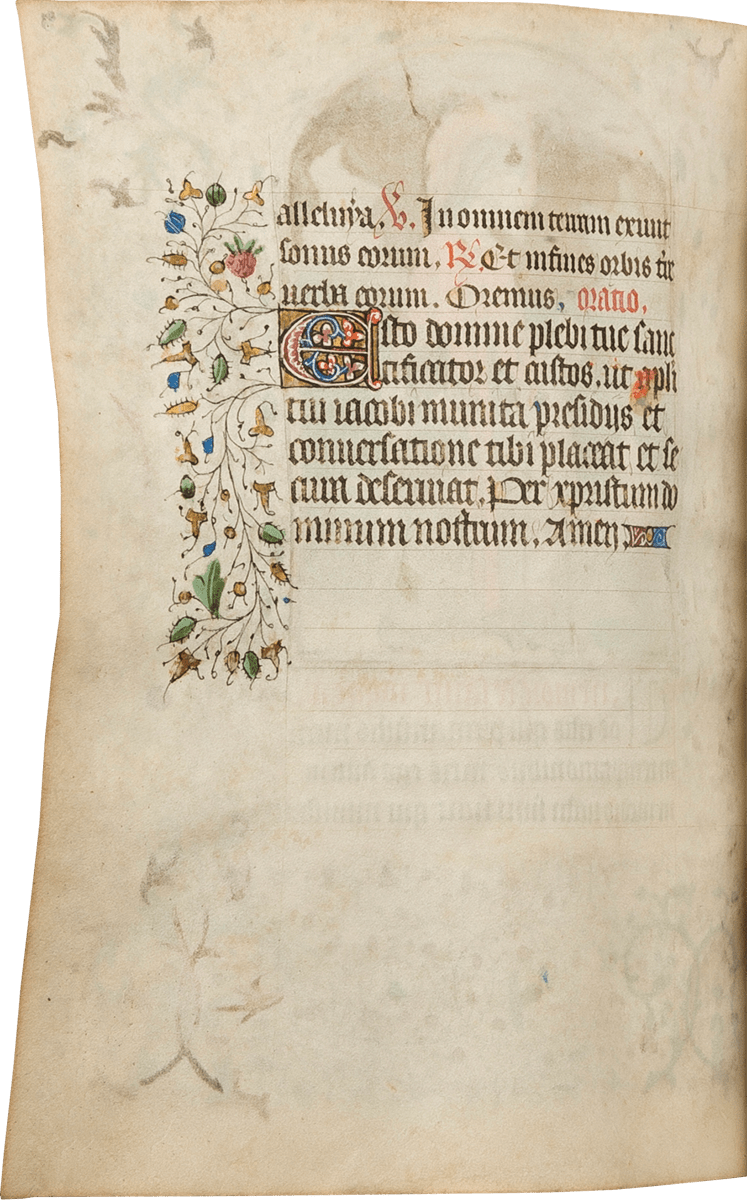 alleluya. V. In omnem terram exiuit
sonus eorum. R. Et in fines orbis tre
uerba eorum. Oremus. oratio.
Esto domine plebi tue sanc
tificator et custos. ut apli
tui iacobi munita presidijs et
conuersatione tibi placeat et se
cura deseruiat. Per xpristum do
minum nostrum. Amen